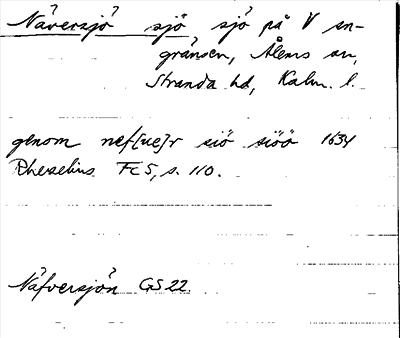 Näversjö sjö sjö på V sn-
gränsen, Ålems sn,
Stranda hd, Kalm. l.
genom nef[ue]r siö siöö 1634
Rhezelius FC5, s. 110.
Näfversjön GS 22.